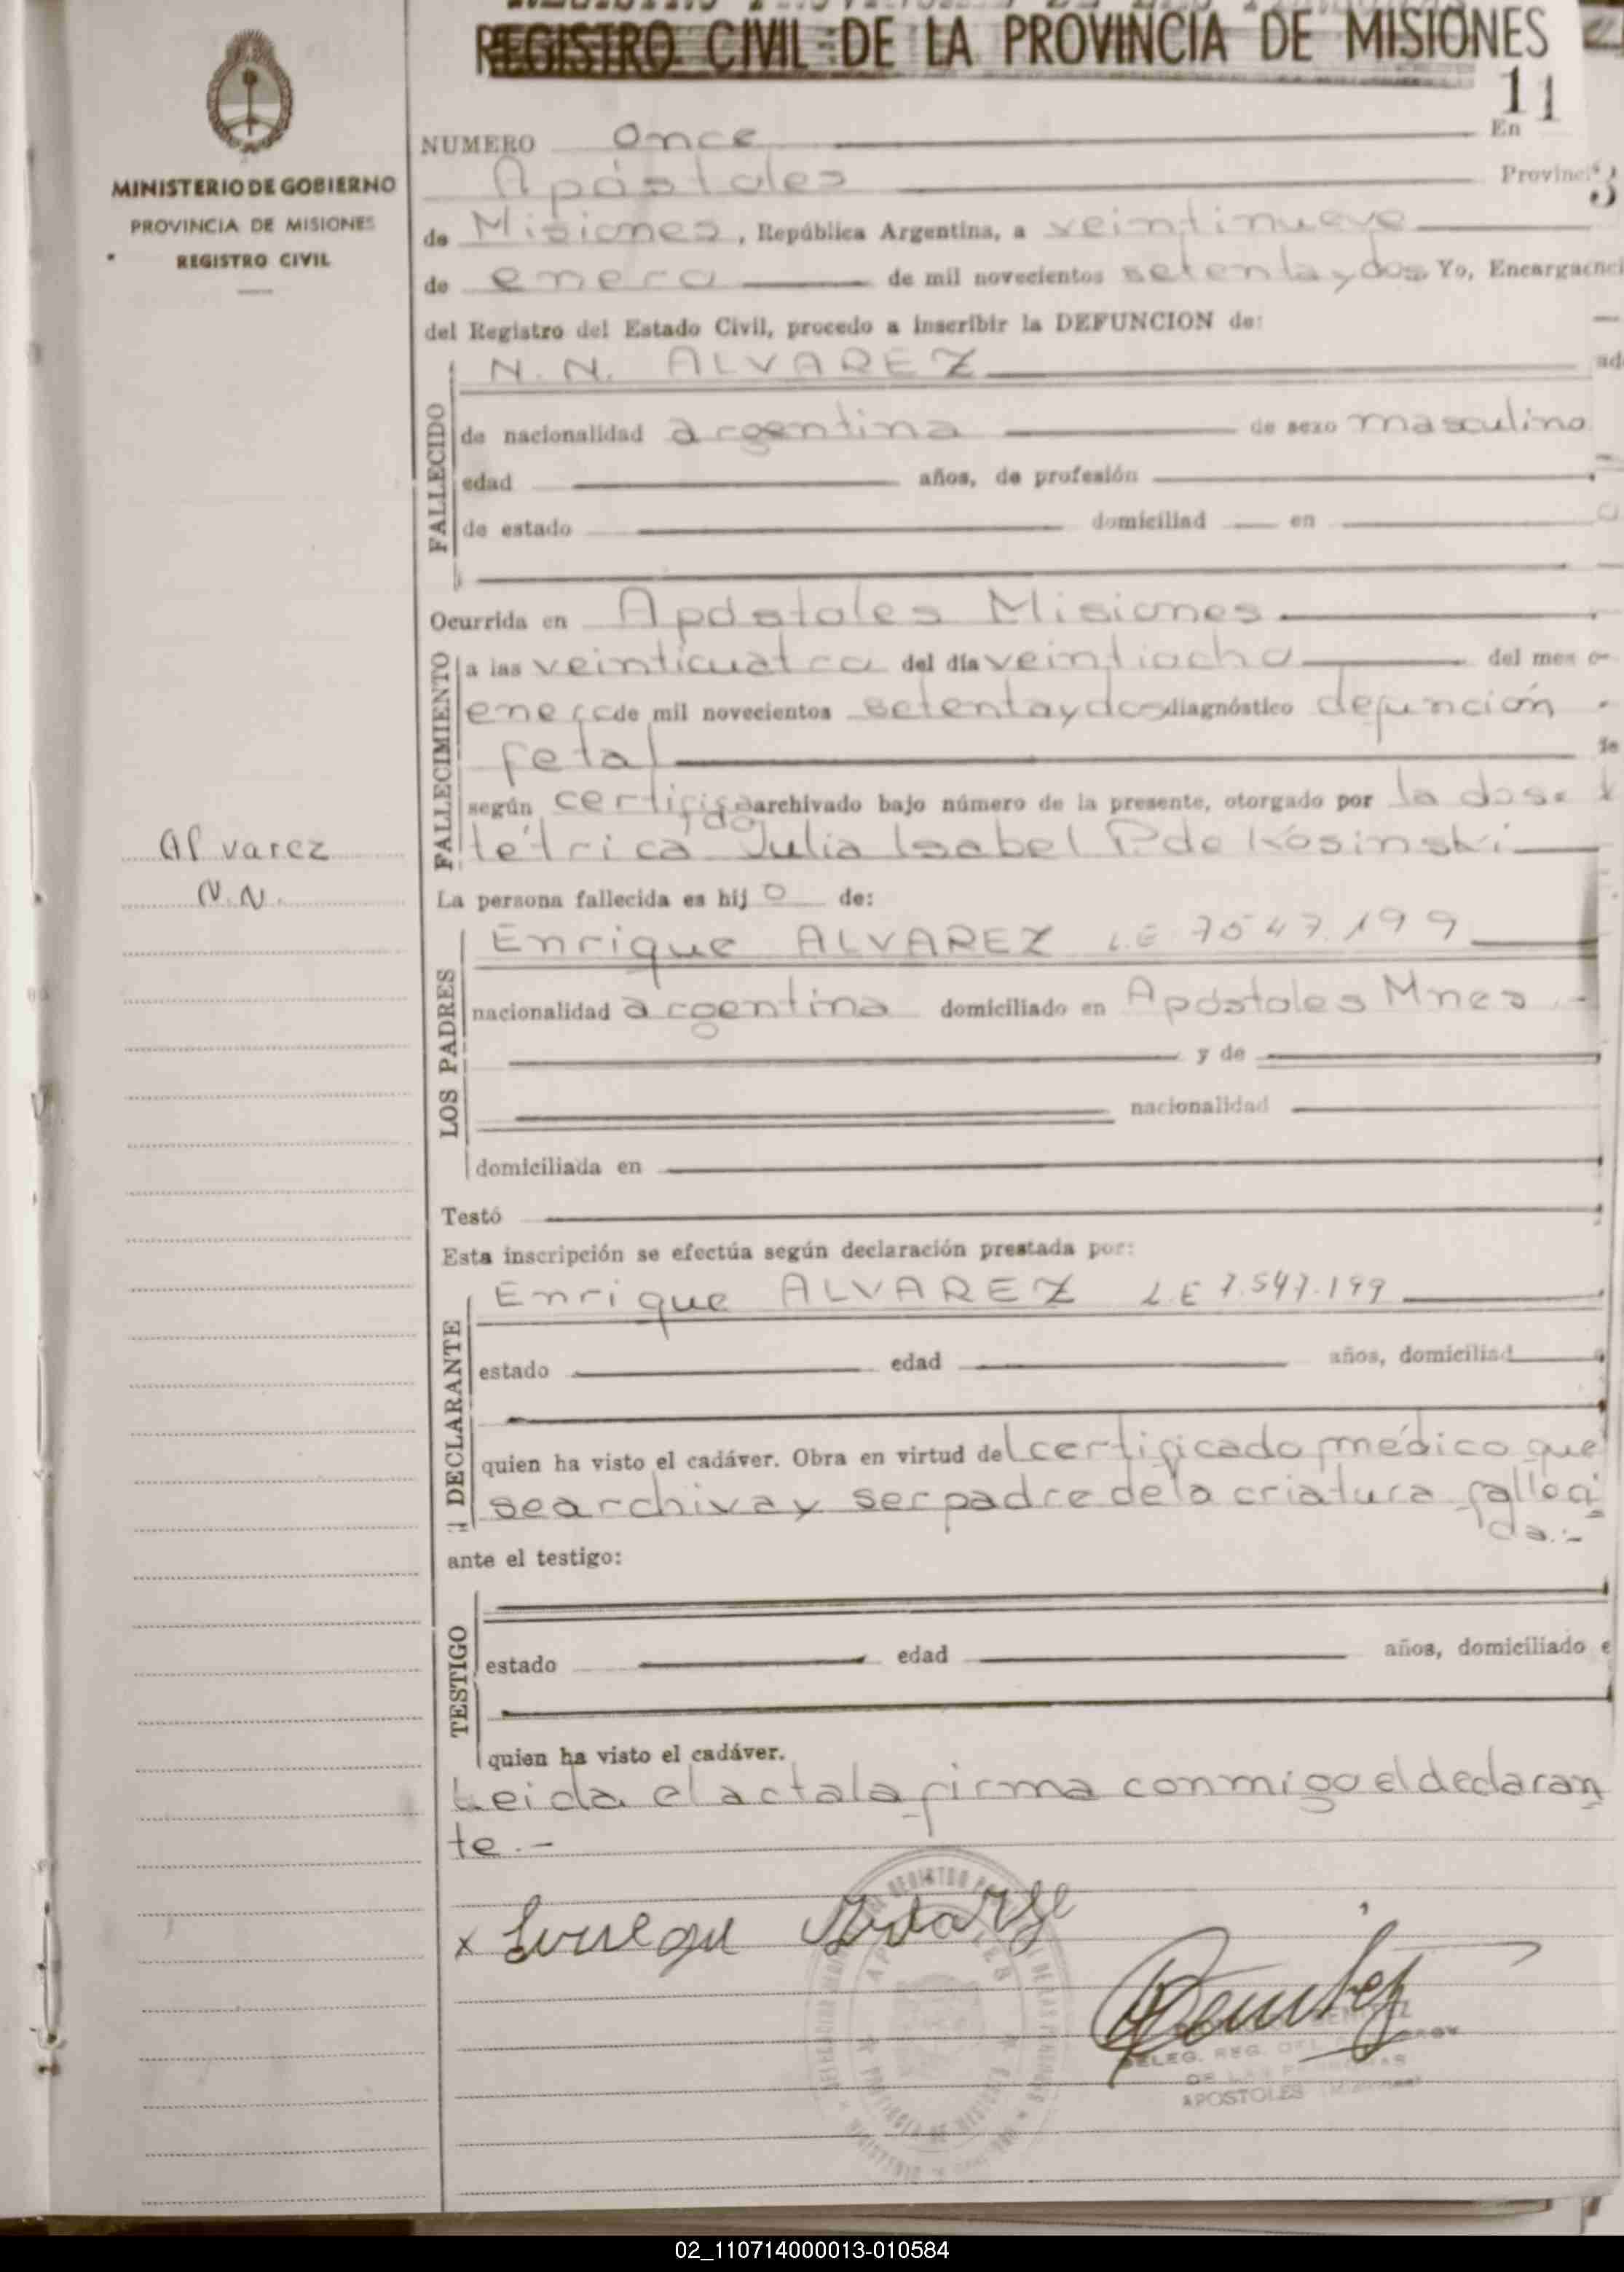 REGISTRO CIVIL DE LA PROVINCIA DE MISIONES
11
MINISTERIO DE GOBIERNO
PROVINCIA DE MISIONES
REGISTRO CIVIL
NUMERO Once En
Apóstoles Provinci
de Misiones, República Argentina, a veintinueve
de enero de mil novecientos setenta y dos Yo, Encarga
del Registro del Estado Civil, procedo a inscribir la DEFUNCION de:
FALLECIDO
N. N. ALVAREZ
de nacionalidad argentina de sexo masculino
edad años, de profesión
de estado domiciliad en
Ocurrida en Apóstoles Misiones
FALLECIMIENTO
a las veinticuatro del día veintiocho del mes
enero de mil novecientos setenta y dos diagnóstico defunción
fetal
según certificado archivado bajo número de la presente, otorgado por la
tétrica Julia Isabel P. de Kosinski
Alvarez
N.N.
La persona fallecida es hij o de:
LOS PADRES
Enrique ALVAREZ L.E 7547.199
nacionalidad argentina domiciliado en Apóstoles Mnes
y de
nacionalidad
domiciliada en
Testó
Esta inscripción se efectúa según declaración prestada por:
DECLARANTE
Enrique ALVAREZ L.E 7.547.199
estado edad años, domiciliad
quien ha visto el cadáver. Obra en virtud del certificado médico que
se archiva y ser padre de la criatura falleci
da.-
ante el testigo:
TESTIGO
estado edad años, domiciliado e
quien ha visto el cadáver.
Leida el acta la firma conmigo el declaran
te.-
x
DELEG. REG.
APOSTOLES (Misiones)
02_110714000013-010584